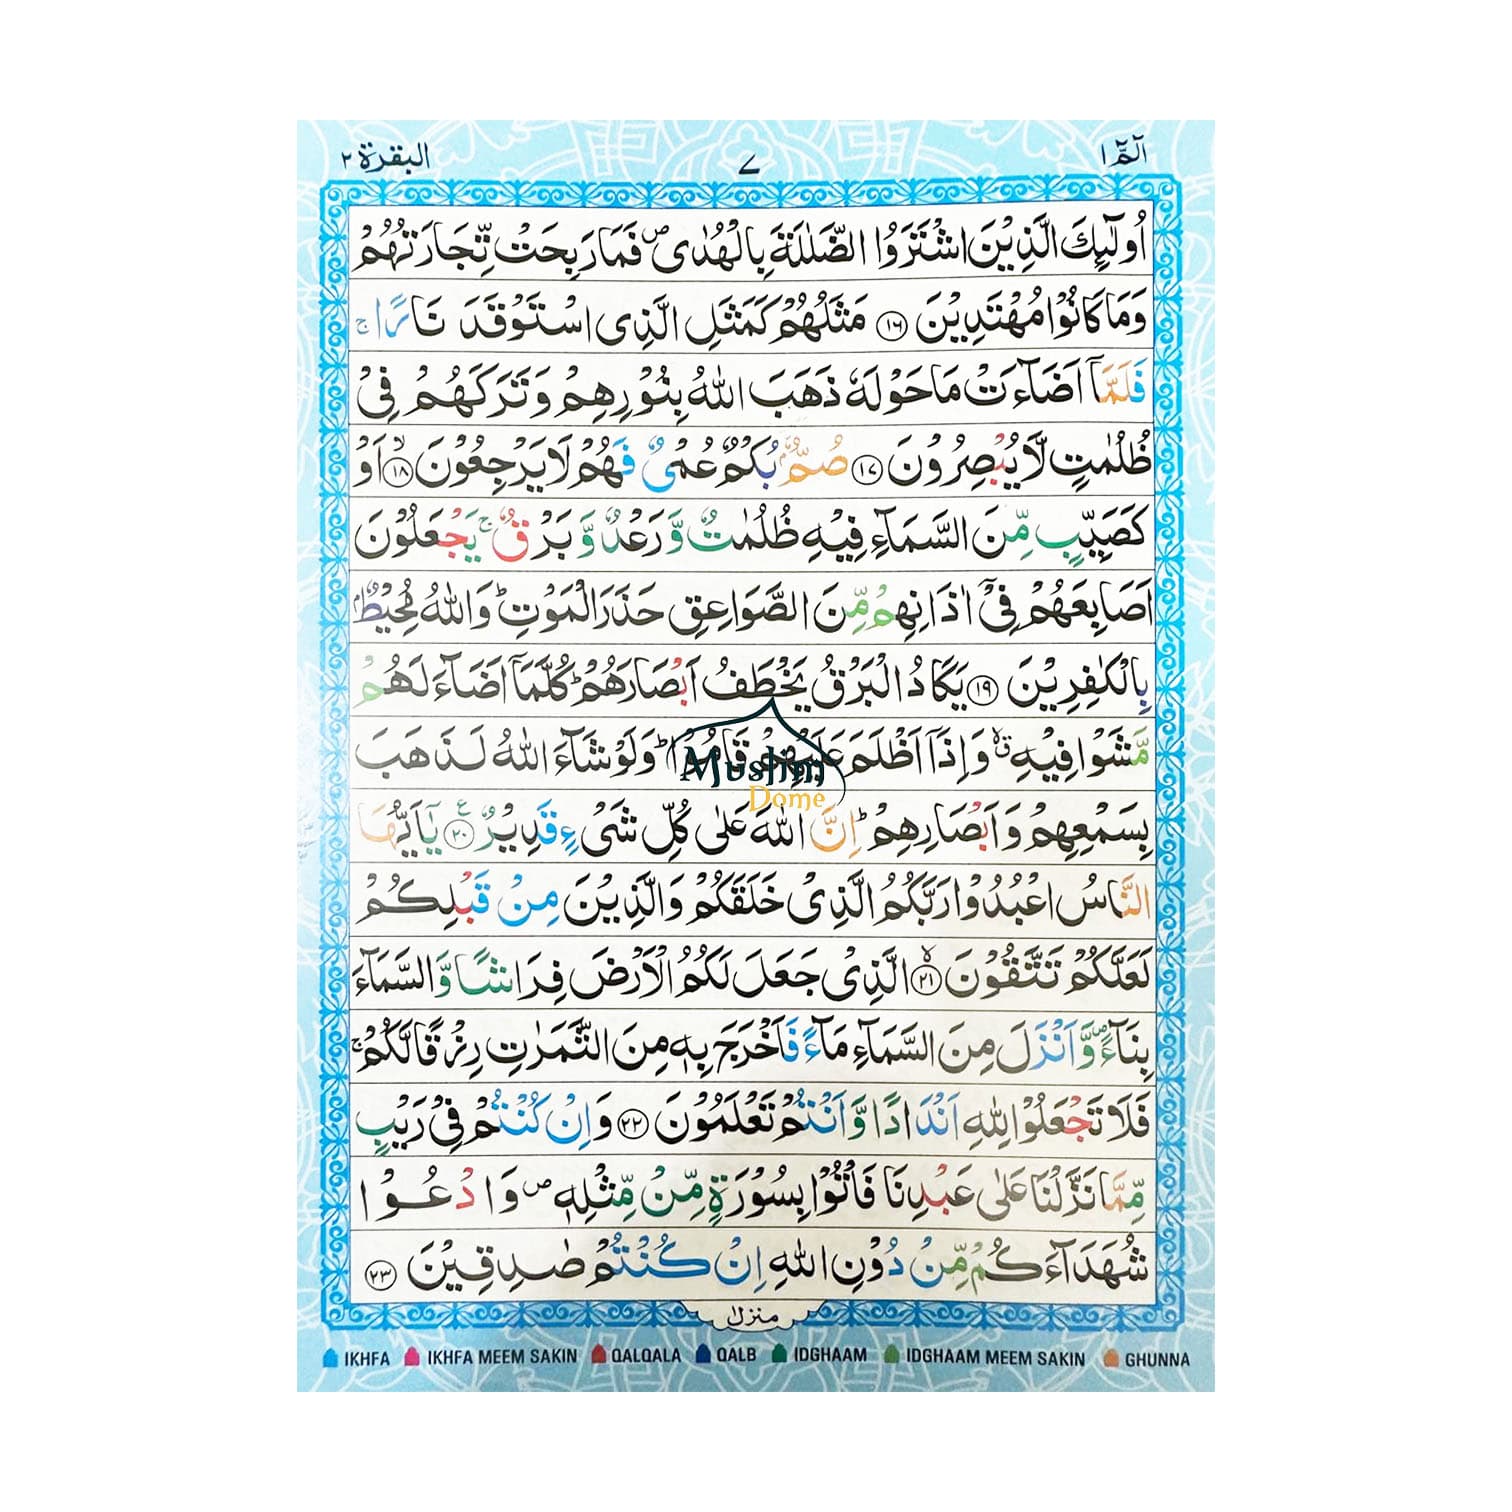 الٓمّٓ ١
٧
البقرة ٢
اُولٰٓئِكَ الَّذِيْنَ اشْتَرَوُا الضَّلٰلَةَ بِالْهُدٰى ۖ فَمَا رَبِحَتْ تِّجَارَتُهُمْ
وَمَا كَانُوْا مُهْتَدِيْنَ ﴿١٦﴾ مَثَلُهُمْ كَمَثَلِ الَّذِى اسْتَوْقَدَ نَارًا ۚ
فَلَمَّآ اَضَآءَتْ مَا حَوْلَهٗ ذَهَبَ اللّٰهُ بِنُوْرِهِمْ وَتَرَكَهُمْ فِيْ
ظُلُمٰتٍ لَّا يُبْصِرُوْنَ ﴿١٧﴾ صُمٌّۢ بُكْمٌ عُمْيٌ فَهُمْ لَا يَرْجِعُوْنَ ﴿١٨﴾ۙ اَوْ
كَصَيِّبٍ مِّنَ السَّمَآءِ فِيْهِ ظُلُمٰتٌ وَّرَعْدٌ وَّبَرْقٌ ۚ يَجْعَلُوْنَ
اَصَابِعَهُمْ فِيْٓ اٰذَانِهِمْ مِّنَ الصَّوَاعِقِ حَذَرَ الْمَوْتِ ؕ وَاللّٰهُ مُحِيْطٌۢ
بِالْكٰفِرِيْنَ ﴿١٩﴾ يَكَادُ الْبَرْقُ يَخْطَفُ اَبْصَارَهُمْ ؕ كُلَّمَآ اَضَآءَ لَهُمْ
مَّشَوْا فِيْهِ ۙۗ وَاِذَآ اَظْلَمَ عَلَيْهِمْ قَامُوْا ؕ وَلَوْ شَآءَ اللّٰهُ لَذَهَبَ
Muslim
Dome
بِسَمْعِهِمْ وَاَبْصَارِهِمْ ؕ اِنَّ اللّٰهَ عَلٰى كُلِّ شَيْءٍ قَدِيْرٌ ﴿٢٠﴾ ع يٰٓاَيُّهَا
النَّاسُ اعْبُدُوْا رَبَّكُمُ الَّذِيْ خَلَقَكُمْ وَالَّذِيْنَ مِنْ قَبْلِكُمْ
لَعَلَّكُمْ تَتَّقُوْنَ ﴿٢١﴾ۙ الَّذِيْ جَعَلَ لَكُمُ الْاَرْضَ فِرَاشًا وَّالسَّمَآءَ
بِنَآءً ۖ وَّاَنْزَلَ مِنَ السَّمَآءِ مَآءً فَاَخْرَجَ بِهٖ مِنَ الثَّمَرٰتِ رِزْقًا لَّكُمْ ۚ
فَلَا تَجْعَلُوْا لِلّٰهِ اَنْدَادًا وَّاَنْتُمْ تَعْلَمُوْنَ ﴿٢٢﴾ وَاِنْ كُنْتُمْ فِيْ رَيْبٍ
مِّمَّا نَزَّلْنَا عَلٰى عَبْدِنَا فَاْتُوْا بِسُوْرَةٍ مِّنْ مِّثْلِهٖ ۖ وَادْعُوْا
شُهَدَآءَكُمْ مِّنْ دُوْنِ اللّٰهِ اِنْ كُنْتُمْ صٰدِقِيْنَ ﴿٢٣﴾
منزل ١
IKHFA IKHFA MEEM SAKIN QALQALA QALB IDGHAAM IDGHAAM MEEM SAKIN GHUNNA